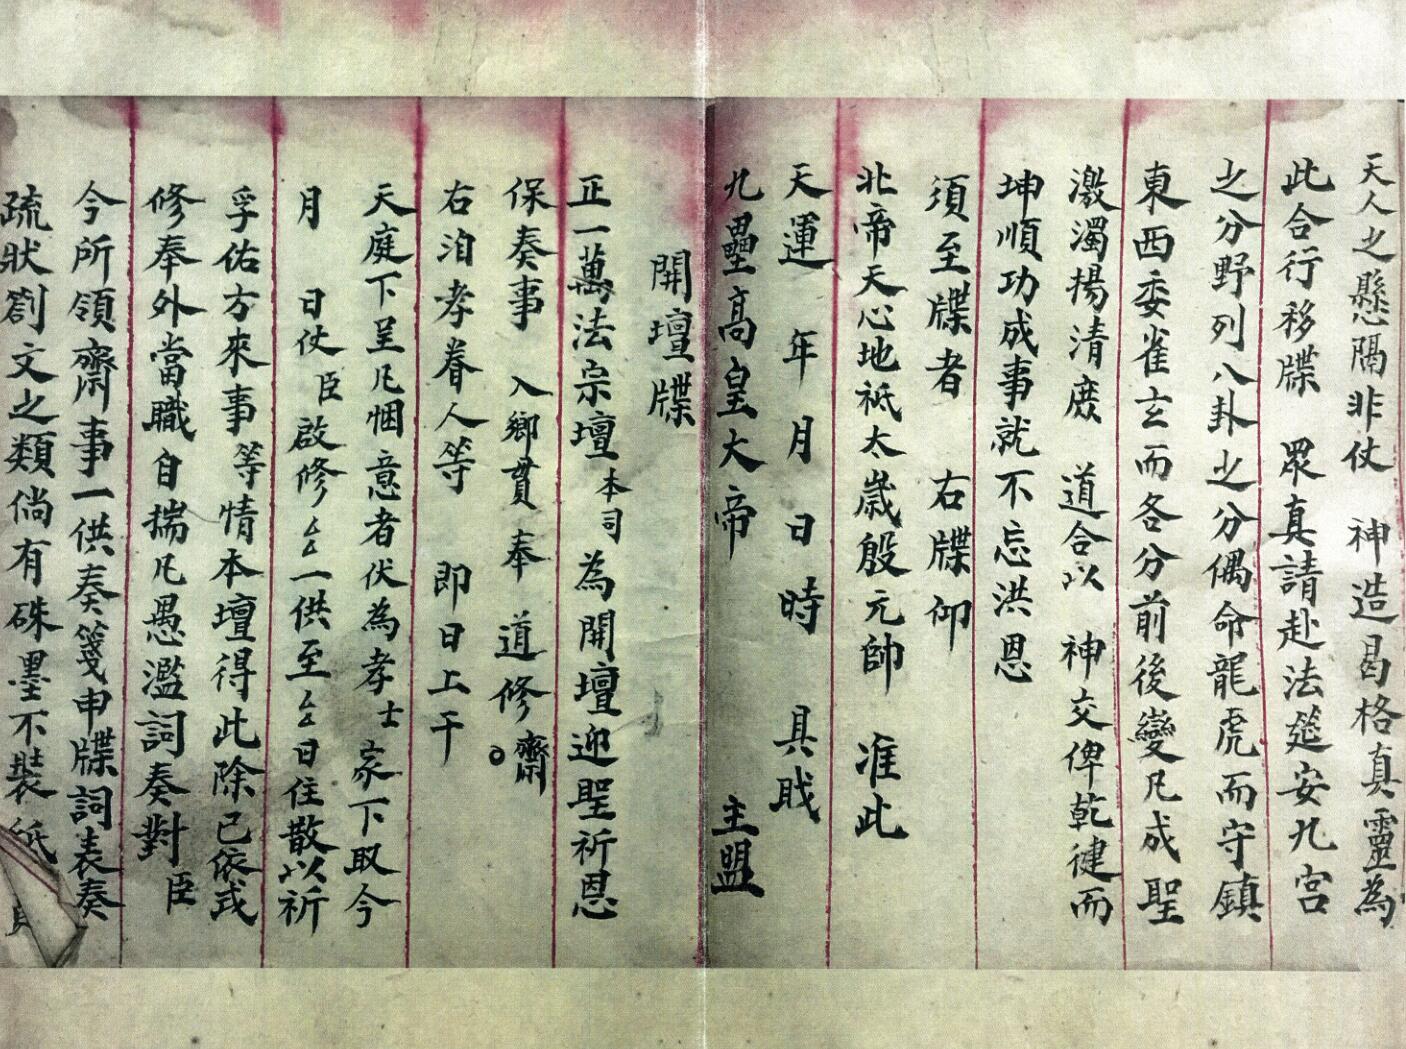 天人之懸隔非仗　神造曷格真靈為
此合行移牒　眾真請赴法筵安九宮
之分野列八卦之分偶命龍虎而守鎮
東西委雀玄而各分前後變凡成聖
激濁揚清庶　道合以　神交俾乾健而
坤順功成事就不忘洪恩
須至牒者　右牒仰
北帝天心地祗太歲殷元帥　准此
天運　年　月　日　時　具職
九壘高皇大帝　主盟
開壇牒
正一萬法宗壇本司為開壇迎聖祈恩
保奏事　入鄉貫　奉　道修齋。
右洎孝眷人等　即日上干
天庭下呈凡悃意者伏為孝士家下取今
月　日仗臣啟修厶一供至厶日住散以祈
孚佑方來事等情本壇得此除已依式
修奉外當職自揣凡愚濫詞奏對臣
今所領齋事一供奏箋申牒詞表奏
疏狀劄文之類倘有硃墨不裝紙